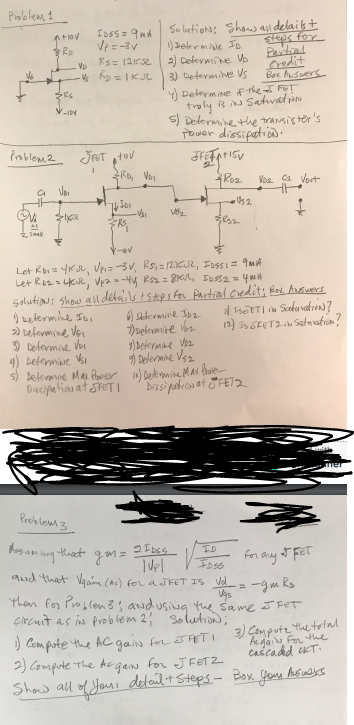 Problem 1
+10V
RD
VD
VG
VS
RS
-10V
IDSS = 9mA
VP = -3V
RS = 12KΩ
RD = 1KΩ
Solution: Show all details +
steps for
Partial
Credit
Box Answers
1) Determine ID
2) Determine VD
3) Determine VS
4) Determine if the JFET
truly is in Saturation
5) Determine the transistor's
power dissipation.
Problem 2
JFET 1
+10V
RD1
VD1
C1
VG1
1KΩ
Vi
ID1
VS1
RS1
-10V
JFET 2
+15V
RD2
VD2
C2
VOUT
VG2
VS2
RS2
Let RD1 = 4KΩ, VP1 = -3V, RS1 = 12KΩ, IDSS1 = 9mA
Let RD2 = 4KΩ, VP2 = -4V, RS2 = 8KΩ, IDSS2 = 4mA
Solutions: Show all details + steps for Partial Credit; Box Answers
1) Determine ID1
2) Determine VG1
3) Determine VD1
4) Determine VS1
5) Determine Max Power
Dissipation at JFET 1
6) Determine ID2
7) Determine VG2
8) Determine VD2
9) Determine VS2
10) Determine Max Power
Dissipation at JFET 2
11) Is JFET 1 in Saturation?
12) Is JFET 2 in Saturation?
Problem 3
Assuming that gm = 2IDSS / |VP| √(ID / IDSS) for any JFET
and that Vgain (AC) for a JFET is Vd / Vgs = -gm RD
then for Problem 3; and using the same JFET
circuit as in Problem 2; Solution;
1) Compute the AC gain for JFET 1
2) Compute the AC gain for JFET 2
3) Compute the total
AC gain for the
cascaded CKT.
Show all of your detail + steps - Box your Answers